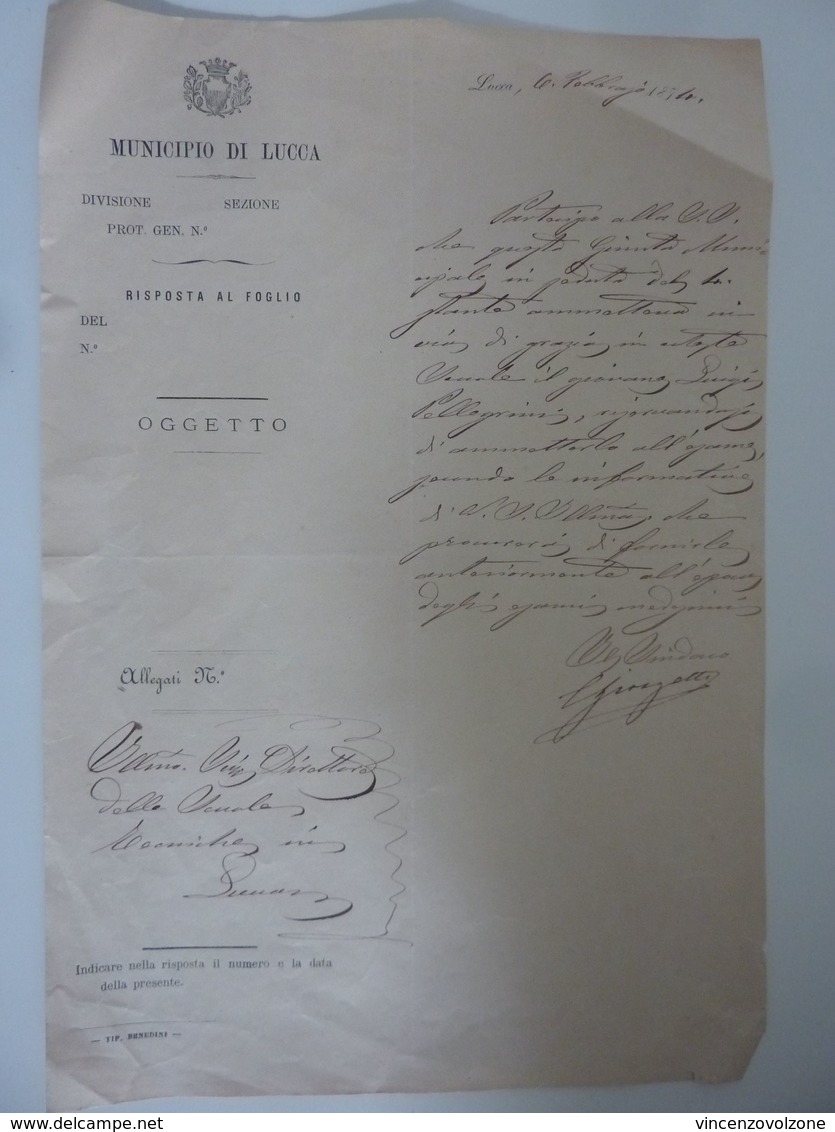 MUNICIPIO DI LUCCA
DIVISIONE SEZIONE
PROT. GEN. N.º
RISPOSTA AL FOGLIO
DEL
N.º
OGGETTO
Allegati N.º
Illmo. Sig. Direttore
delle Scuole
Tecniche in
Lucca
Indicare nella risposta il numero e la data
della presente.
— TIP. BENEDINI —
Lucca, 6. Febbrajo 1874.
Partecipo alla S. S.
che questa Giunta Muni-
cipale in seduta del 4.
stante ammetteva in
via di grazia in coteste
Scuole il giovane Luigi
Pellegrini, riservandosi
di ammetterlo all'esame,
secondo le informative
di V. S. Illma, che
procurerà di fornirle
anteriormente all'epoca
degli esami medesimi
Il Sindaco
delcampe.net
vincenzovolzone